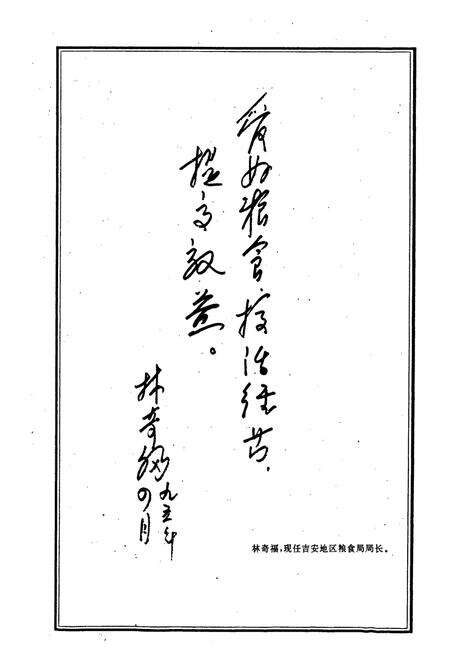 管好粮食,搞活经营,
提高效益。
林奇福
九五年
四月
林奇福,现任吉安地区粮食局局长。